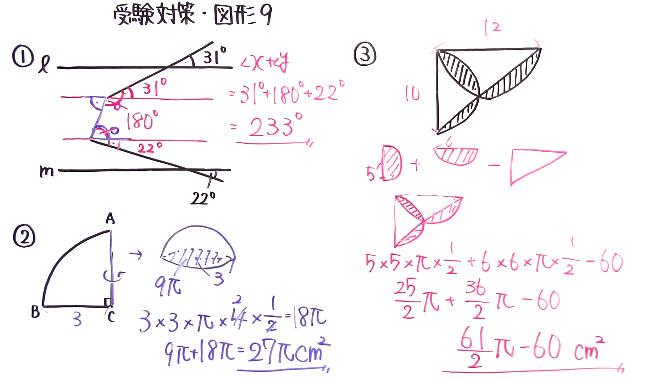 受験対策・図形9
①
l
31°
31°
180°
22°
m
22°
∠x+∠y
=31°+180°+22°
=233°
②
A
B
C
3
→
9π
3
3×3×π×4×1/2=18π
2
9π+18π=27πcm²
③
12
10
5
+
6
-
5×5×π×1/2+6×6×π×1/2-60
25/2π+36/2π-60
61/2π-60 cm²